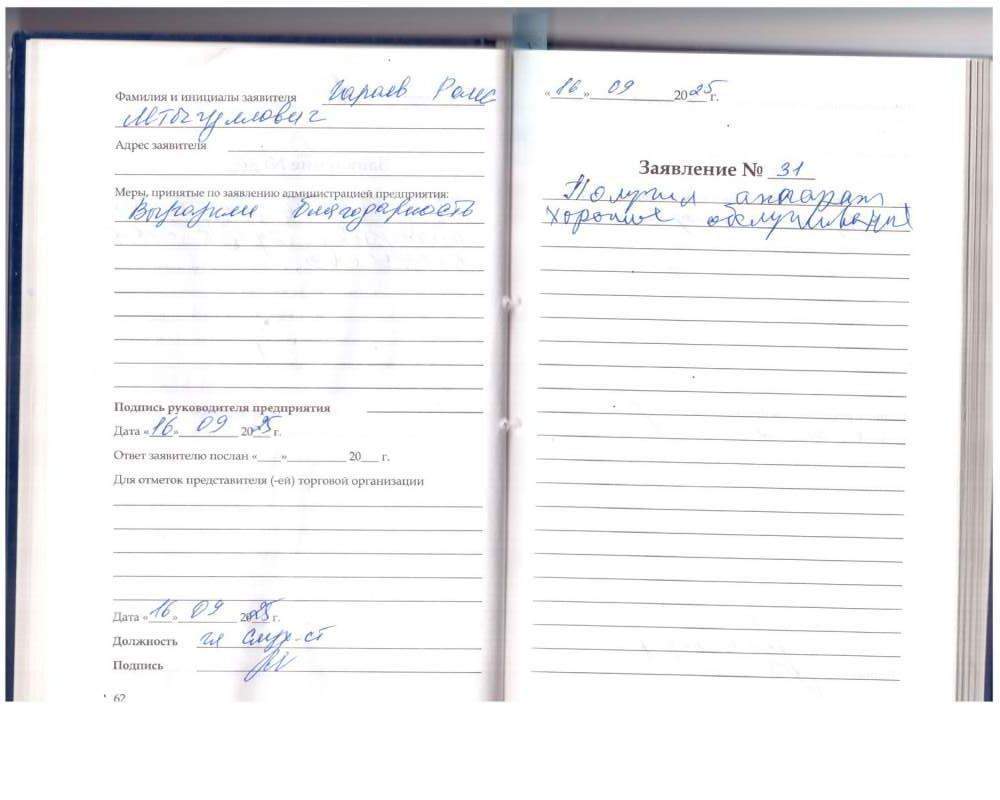 Фамилия и инициалы заявителя Гараев
Адрес заявителя
Меры, принятые по заявлению администрацией предприятия:
Выразили благодарность
Подпись руководителя предприятия
Дата «16» 09 2025 г.
Ответ заявителю послан «___»_________ 20___ г.
Для отметок представителя (-ей) торговой организации
Дата «16» 09 2025 г.
Должность гл слух-ст
Подпись
62
«16» 09 2025 г.
Заявление № 31
Получил аппарат
хорошое обслуживаные